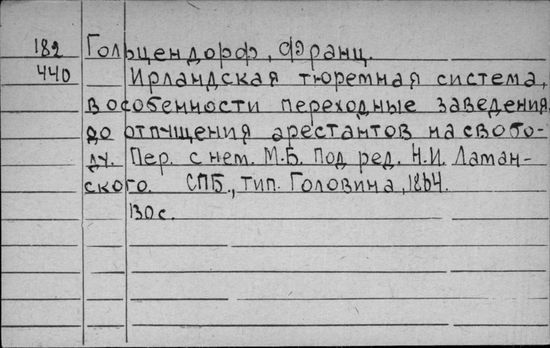 182 Гольцендорф, Франц.
440 Ирландская тюремная система,
в особенности переходные заведения
до отпущения арестантов на свобо-
ду. Пер. с нем. М.Б. Под ред. Н.И. Ламан-
ского. СПБ., тип. Головина, 1864.
130 с.